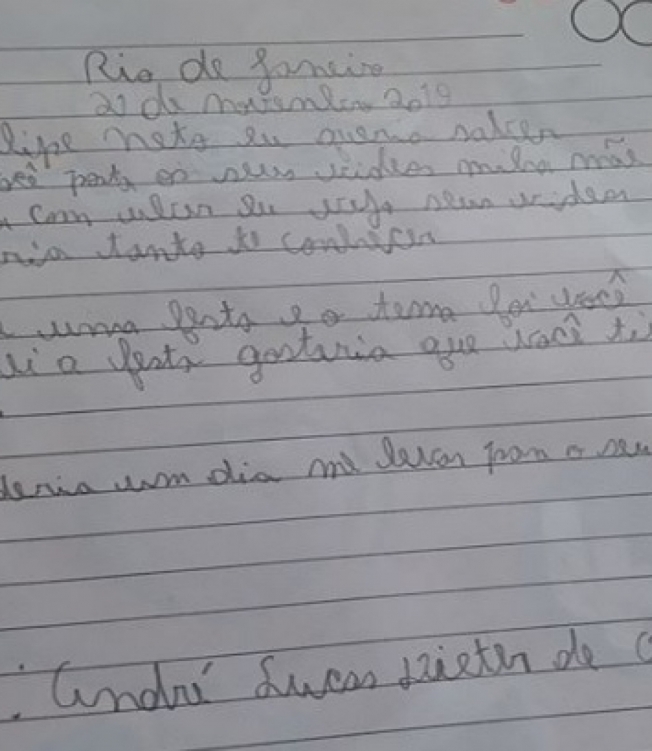 Rio de Janeiro
21 de novembro 2019
lipe neto eu queria saber
posta os seus videos minha mãe
com eu vejo seus videos
ria tanto te conhecer
uma festa e o tema foi você
a festa gostaria que você ti
deria um dia me levar para o seu
: André Lucas de